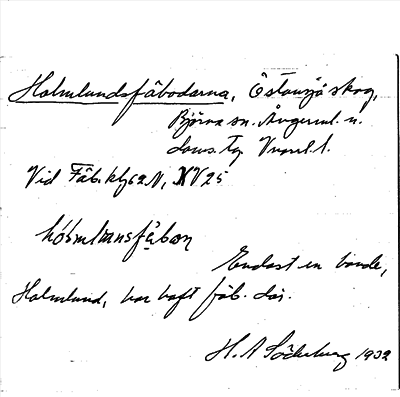 Holmlundsfäbodarna, Östansjö skog,
Björna sn. Ångerml. n.
doms. Vneml. l.
Vid Fäb. kfs2N, XV25
hò̀smlansfäbon
Endast en bonde,
Holmlund, har haft fäb. där.
H. A Söderberg 1932